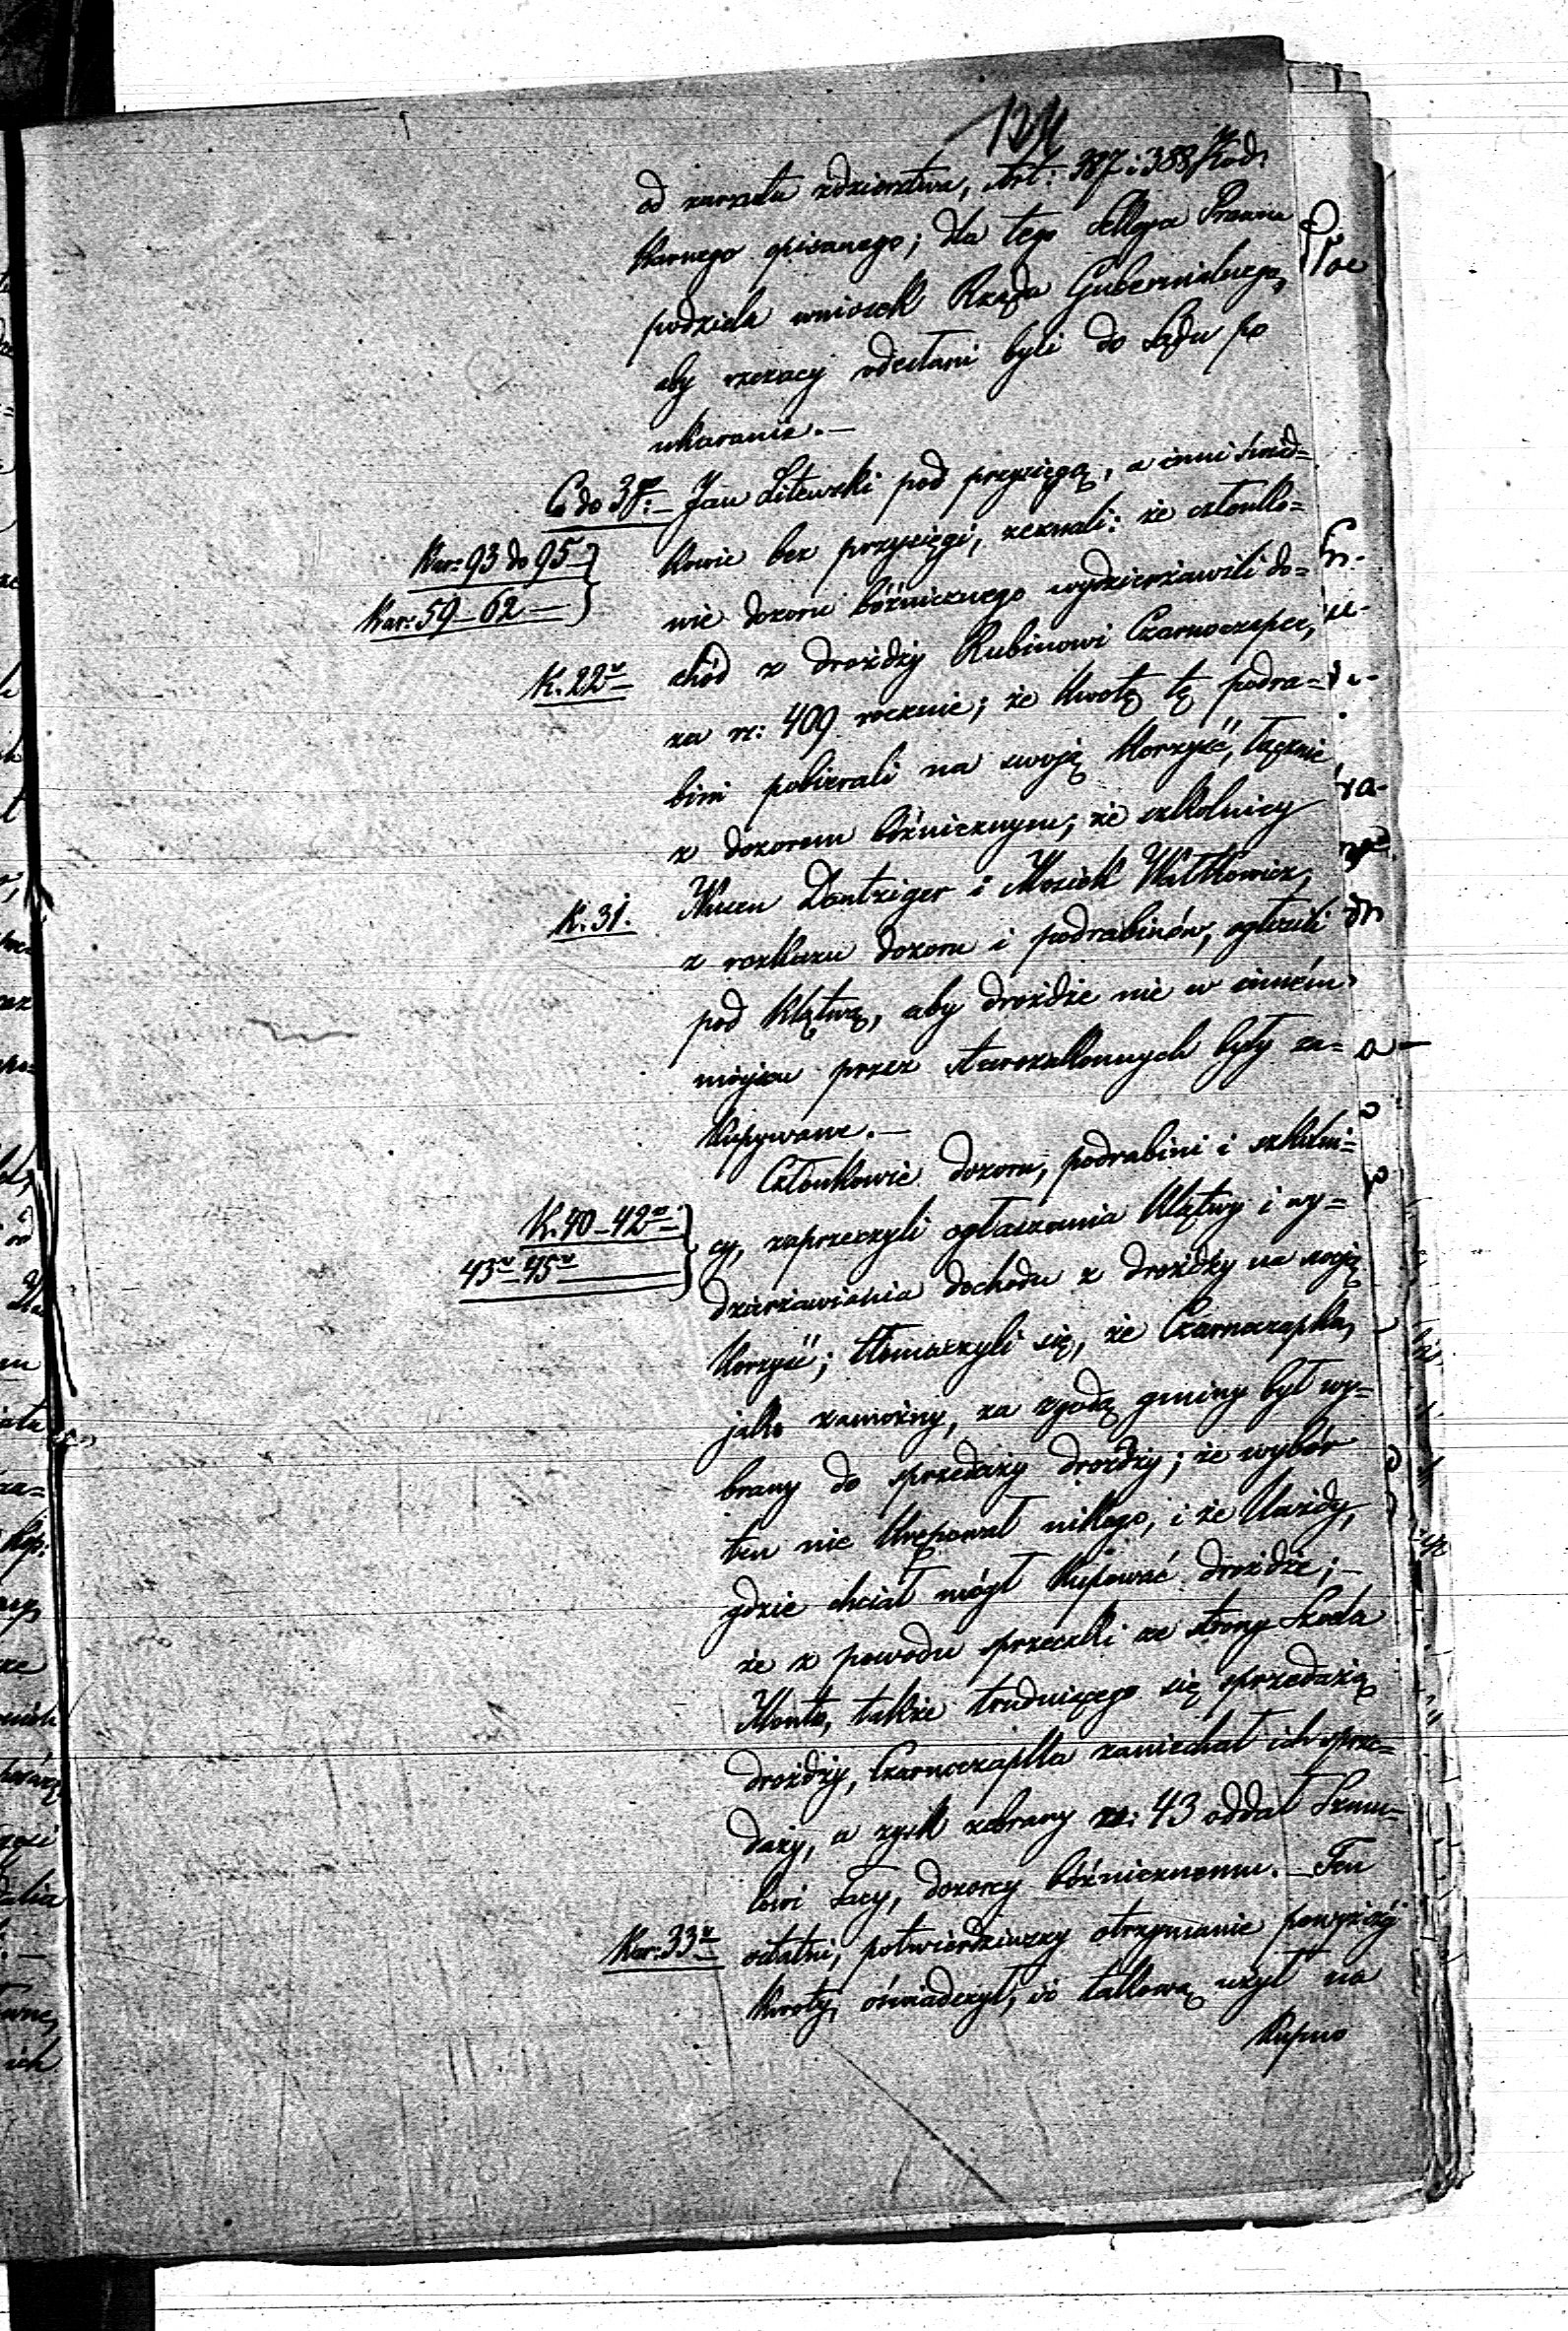 134
od zarzutu zdzierstwa, Art: 387 i 388 Kod:
Karnego opisanego; dla tego Sekcya Prawna
podziela wniosek Rządu Gubernialnego,
aby rzezacy odesłani byli do Sądu po
ukaranie.—
Co do 3go:— Jan Litewski pod przysięgą, a inni świad=
Kar: 93 do 95
kowie bez przysięgi, zeznali: że członko=
Kar: 59–62—
wie dozoru bóżniczego wydzierżawili do=
K. 22v
chód z drożdży Rubinowi Czarnoczapce,
za rs: 409 rocznie; że kwotę tę podra=
bini pobierali na swoję korzyść, łącznie
z dozorem bóżnicznym; że szkolnicy
K. 31.
Dantziger i Mosiek
z rozkazu dozoru i podrabinów, ogłosili
pod klątwą, aby drożdże nie w inném
miejscu przez starozakonnych były za=
kupywane.—
Członkowie dozoru, podrabini i szkolni=
K. 40–42v
cy, zaprzeczyli ogłaszania klątwy i wy=
43v 45v
dzierżawienia dochodu z drożdży na swoję
korzyść; tłomaczyli się, że Czarnoczapka,
jako zamożny, za zgodą gminy był wy=
brany do sprzedaży drożdży; że wybór
ten nie krępował nikogo, i że każdy,
gdzie chciał mógł kupować drożdże;—
że z powodu sprzeczki ze strony
także trudniącego się sprzedażą
drożdży, Czarnoczapka zaniechał ich sprze=
daży, a zysk zebrany rs: 43 oddał Szmu=
lowi dozorcy bóżnicznemu.— Ten
Kar: 33v
ostatni, potwierdziwszy otrzymanie powyższéj
kwoty, oświadczył, iż takową użył na
kupno